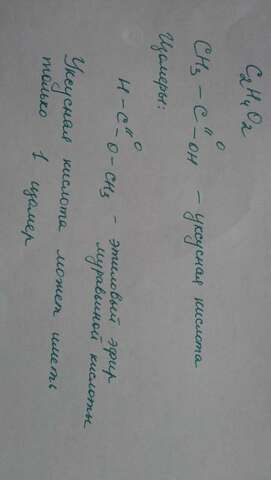 C2H4O2
O
CH3 – C – OH – уксусная кислота
Изомеры:
O
H – C – O – CH3 – этиловый эфир
муравьиной кислоты
Уксусная кислота может иметь
только 1 изомер